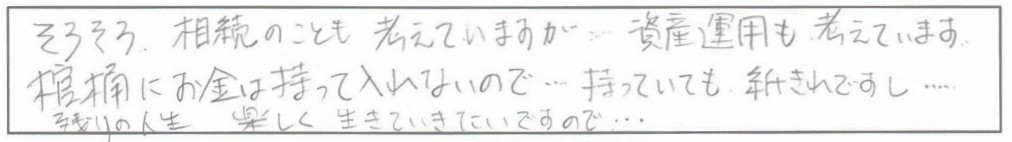 そろそろ、相続のことも考えていますが…資産運用も考えています。
棺桶にお金は持って入れないので…持っていても紙きれですし……
残りの人生 楽しく生きていきたいですので…